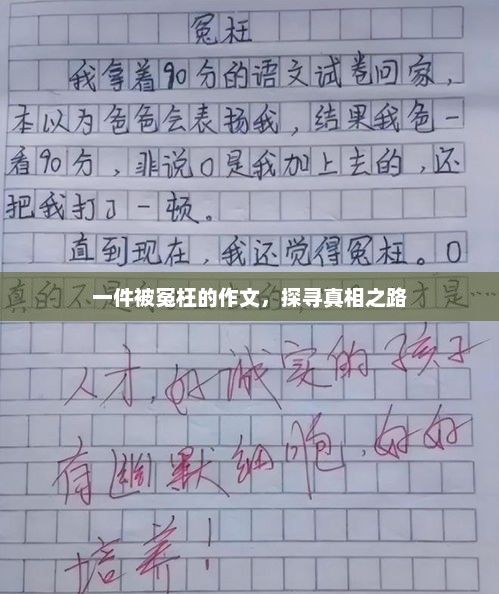 冤枉
我拿着90分的语文试卷回家，
本以为色色会表扬我，结果我色一
看90分，非说0是我加上去的，还
把我打了一顿。
直到现在，我还觉得冤枉。0
真的不是 才是…
一件被冤枉的作文，探寻真相之路
人才，好诚实的孩子
有幽默细胞，好好
培养！